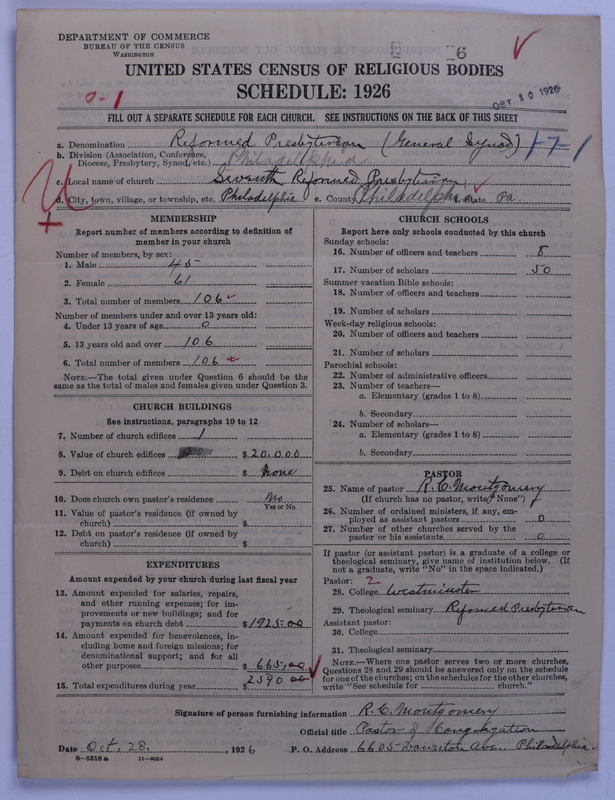 DEPARTMENT OF COMMERCE
BUREAU OF THE CENSUS
WASHINGTON
6
UNITED STATES CENSUS OF RELIGIOUS BODIES
SCHEDULE: 1926
0-1
OCT 30 1926
FILL OUT A SEPARATE SCHEDULE FOR EACH CHURCH. SEE INSTRUCTIONS ON THE BACK OF THIS SHEET
a. Denomination Reformed Presbyterian (General Synod) 1-7-1
b. Division (Association, Conference, Diocese, Presbytery, Synod, etc.) Philadelphia
c. Local name of church Seventh Reformed Presbyterian
d. City, town, village, or township, etc. Philadelphia e. County Philadelphia f. State Pa.
MEMBERSHIP
Report number of members according to definition of
member in your church
Number of members, by sex:
1. Male 45
2. Female 61
3. Total number of members 106
Number of members under and over 13 years old:
4. Under 13 years of age 0
5. 13 years old and over 106
6. Total number of members 106
NOTE.—The total given under Question 6 should be the
same as the total of males and females given under Question 3.
CHURCH BUILDINGS
See instructions, paragraphs 10 to 12
7. Number of church edifices 1
8. Value of church edifices $20,000
9. Debt on church edifices $ None
10. Does church own pastor's residence No
Yes or No
11. Value of pastor's residence (if owned by
church) $
12. Debt on pastor's residence (if owned by
church) $
EXPENDITURES
Amount expended by your church during last fiscal year
13. Amount expended for salaries, repairs,
and other running expenses; for im-
provements or new buildings; and for
payments on church debt $1925.00
14. Amount expended for benevolences, in-
cluding home and foreign missions; for
denominational support; and for all
other purposes $665.00
15. Total expenditures during year 2590 00
CHURCH SCHOOLS
Report here only schools conducted by this church
Sunday schools:
16. Number of officers and teachers 8
17. Number of scholars 50
Summer vacation Bible schools:
18. Number of officers and teachers
19. Number of scholars
Week-day religious schools:
20. Number of officers and teachers
21. Number of scholars
Parochial schools:
22. Number of administrative officers
23. Number of teachers—
a. Elementary (grades 1 to 8)
b. Secondary
24. Number of scholars—
a. Elementary (grades 1 to 8)
b. Secondary
PASTOR
25. Name of pastor R. C. Montgomery
(If church has no pastor, write "None")
26. Number of ordained ministers, if any, em-
ployed as assistant pastors 0
27. Number of other churches served by the
pastor or his assistants 0
If pastor (or assistant pastor) is a graduate of a college or
theological seminary, give name of institution below. (If
not a graduate, write "No" in the space indicated.)
Pastor: 2
28. College Westminster
29. Theological seminary Reformed Presbyterian
Assistant pastor:
30. College
31. Theological seminary
NOTE.—Where one pastor serves two or more churches,
Questions 28 and 29 should be answered only on the schedule
for one of the churches; on the schedules for the other churches,
write "See schedule for church."
Signature of person furnishing information R. C. Montgomery
Official title Pastor of Congregation
Date Oct. 28, 1926 P. O. Address 6605 Ave. Philadelphia
8—5518a 11—9054